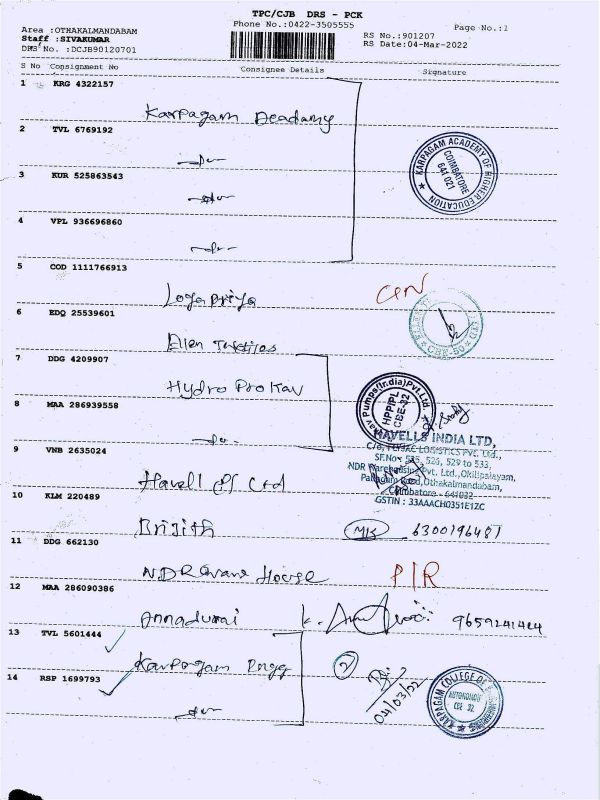 TPC/CJB DRS - PCK
Phone No.:0422-3505555
Page No.:1
Area :OTHAKALMANDABAM
Staff :SIVAKUMAR
DRS No. :DCJB90120701
RS No.:901207
RS Date:04-Mar-2022
S No Consignment No Consignee Details Signature
1 KRG 4322157
Karpagam Deadamy
2 TVL 6769192
3 KUR 525863543
4 VPL 936696860
KARPAGAM ACADEMY OF HIGHER EDUCATION
COIMBATORE
641 021
5 COD 1111766913
Logapriya
6 EDQ 25539601
CBE-50
Ellen
7 DDG 4209907
Hydro Prokav
8 MAA 286939558
Pumps(India)Pvt.Ltd.
HPPIPL
CBE-32
9 VNB 2635024
HAVELLS INDIA LTD,
LOGISTICS Pvt. Ltd.,
SF.No: 525, 526, 529 to 533,
NDR Warehousing Pvt. Ltd., Okilipalayam,
Palladam Road, Othakalmandabam,
Coimbatore - 641032
GSTIN : 33AAACH0351E1ZC
Havell
Ltd
10 KLM 220489
Brijith MK 6300196481
11 DDG 662130
N.D.R House P/R
12 MAA 286090386
Annadurai 9659241424
13 TVL 5601444
Karpagam Engg 2
04/03/22
14 RSP 1699793
KARPAGAM COLLEGE OF ENGINEERING
AUTONOMOUS
CBE 32